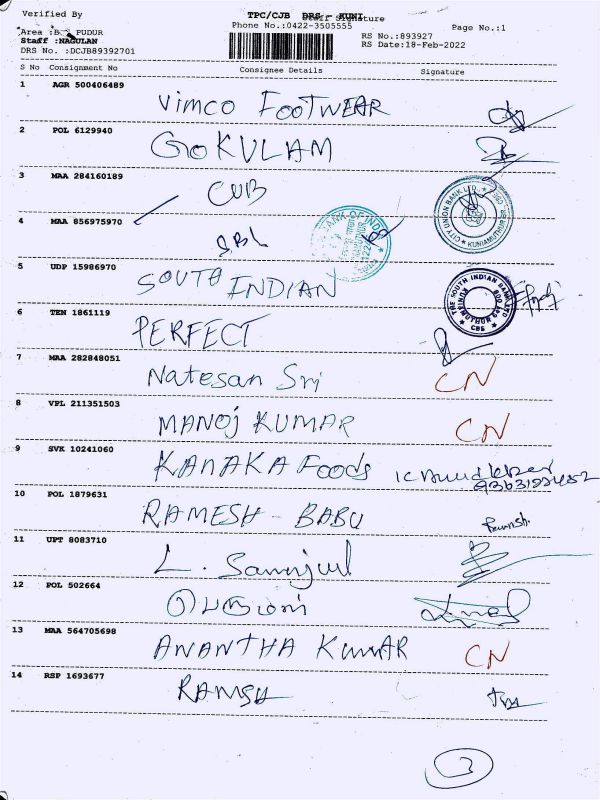 Verified By
TPC/CJB DRS KUNI
Staff Signature
Phone No.:0422-3505555
Page No.:1
Area :B. PUDUR
RS No.:893927
Staff :NAGULAN
RS Date:18-Feb-2022
DRS No. :DCJB89392701
S No Consignment No Consignee Details Signature
1 AGR 500406489
Vimco FOOTWEAR
2 POL 6129940
GOKULAM
3 MAA 284160189
CUB
CITY UNION BANK LTD.,
KUNIAMUTHUR
4 MAA 856975970
SBI
BANK OF INDIA
5 UDP 15986970
SOUTH INDIAN
THE SOUTH INDIAN BANK LTD
6 TEN 1861119
PERFECT
7 MAA 282848051
Natesan Sri CN
8 VPL 211351503
MANOJ KUMAR CN
9 SVK 10241060
KANAKA Foods
10 POL 1879631
RAMESH - BABU
11 UPT 8083710
L.
12 POL 502664
13 MAA 564705698
ANANTHA KUMAR CN
14 RSP 1693677
RAMSH
3